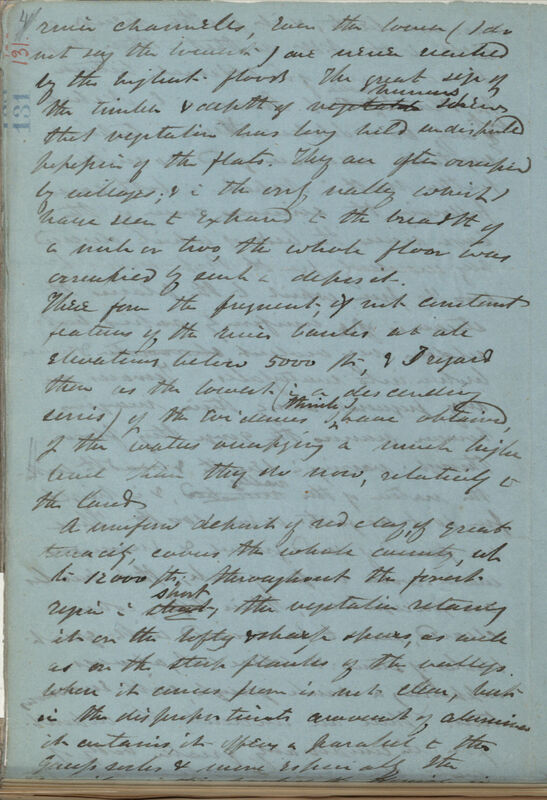 4/
131
131
river channells, even the lower (I do
not say the lowest) are never reached
by the highest floods. The great size of
the timber & depth of vegetable humus shews
that vegetation has long held undisputed
possession of the flats. They are often occupied
by villages; & in the only valley which I
have seen to expand to the breadth of
a mile or two, the whole floor was
occupied by such a deposit.
These form the frequent, if not constant
features of the river banks at all
elevations below 5000 ft, & I regard
them as the lowest (in a descending
series) of the evidences I think I have obtained,
of the waters occupying a much higher
level than they do now, relatively to
the land
A uniform deposit of red clay, of great
tenacity, covers the whole country, up
to 12000 ft, throughout the forest
region in short, the vegetation retaining
it on the lofty & sharp spurs, as well
as on the steep flanks of the valleys.
Whence it comes from is not clear, but
in the disproportionate amount of alumina
it contains it offers a parallel to the
Gneiss rocks & more especially the